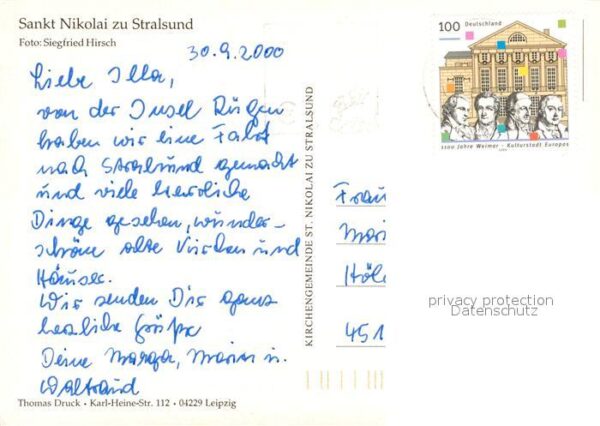 Sankt Nikolai zu Stralsund
Foto: Siegfried Hirsch
30.9.2000
Liebe Illa,
von der Insel Rügen
haben wir eine Fahrt
nach Stralsund gemacht
und viele herrliche
Dinge gesehen, wunder-
schöne alte Kirchen und
Häuser.
Wir senden Dir ganz
herzliche Grüße
Deine Marga, Marin u.
Waltraud
Thomas Druck • Karl-Heine-Str. 112 • 04229 Leipzig
KIRCHENGEMEINDE ST. NIKOLAI ZU STRALSUND
100 Deutschland
1100 Jahre Weimar - Kulturstadt Europas
Frau
451
privacy protection
Datenschutz